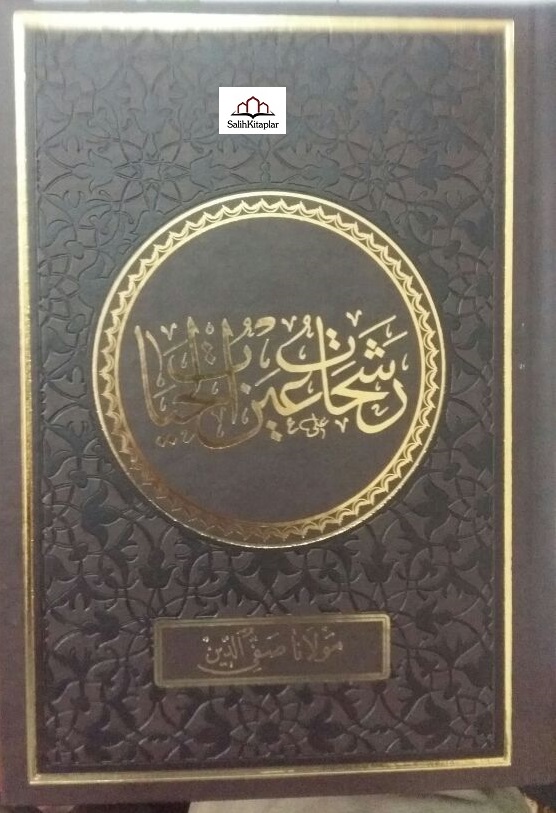 SalihKitaplar
رشحات عين الحيات
مولانا صفي الدين